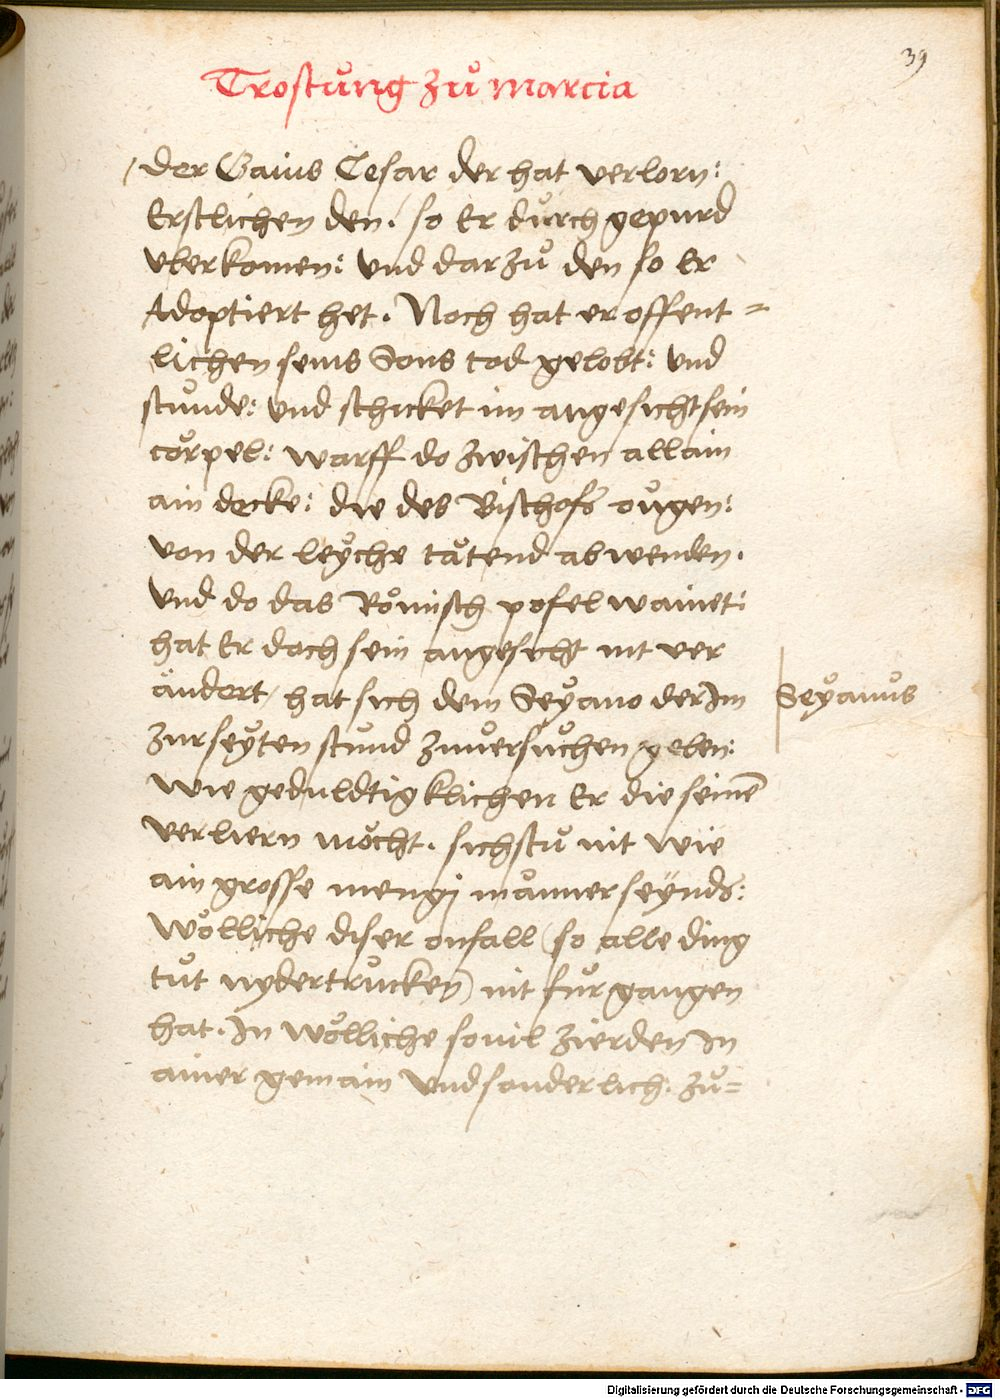 39
Trostung zů Marcia
/ der Gaius Cesar der hat verlorn:
Erstlichen den / so Er durch gepurd
vberkomen: Vnd dar zů den so Er
Adoptiert het. Noch hat er offent=
lichen seins Sons tod gelobt: Vnd
stunde: Vnd schicket im angesicht sein
cörpel: warff do zwischen allain
ain decke: die des Bischofs oůgen:
von der leÿche tåtend abwenden.
Vnd do das Römisch pofel wainet:
hat Er doch sein angesicht nit ver
åndert / hat sich dem Seÿano der Im
zur seÿten stund zuuersůchen geben:
wie geduldtigklichen Er die seinē
verliern möcht. sichstu nit wie
ain grosse mengj månner seÿnds:
Wölliche diser onfall (so alle ding
tůt nydertrucken) nit fur gangen
hat. In wölliche souil zierden In
ainer gemain vnd sonderlich: zů=
Seÿanus
Digitalisierung gefördert durch die Deutsche Forschungsgemeinschaft - DFG